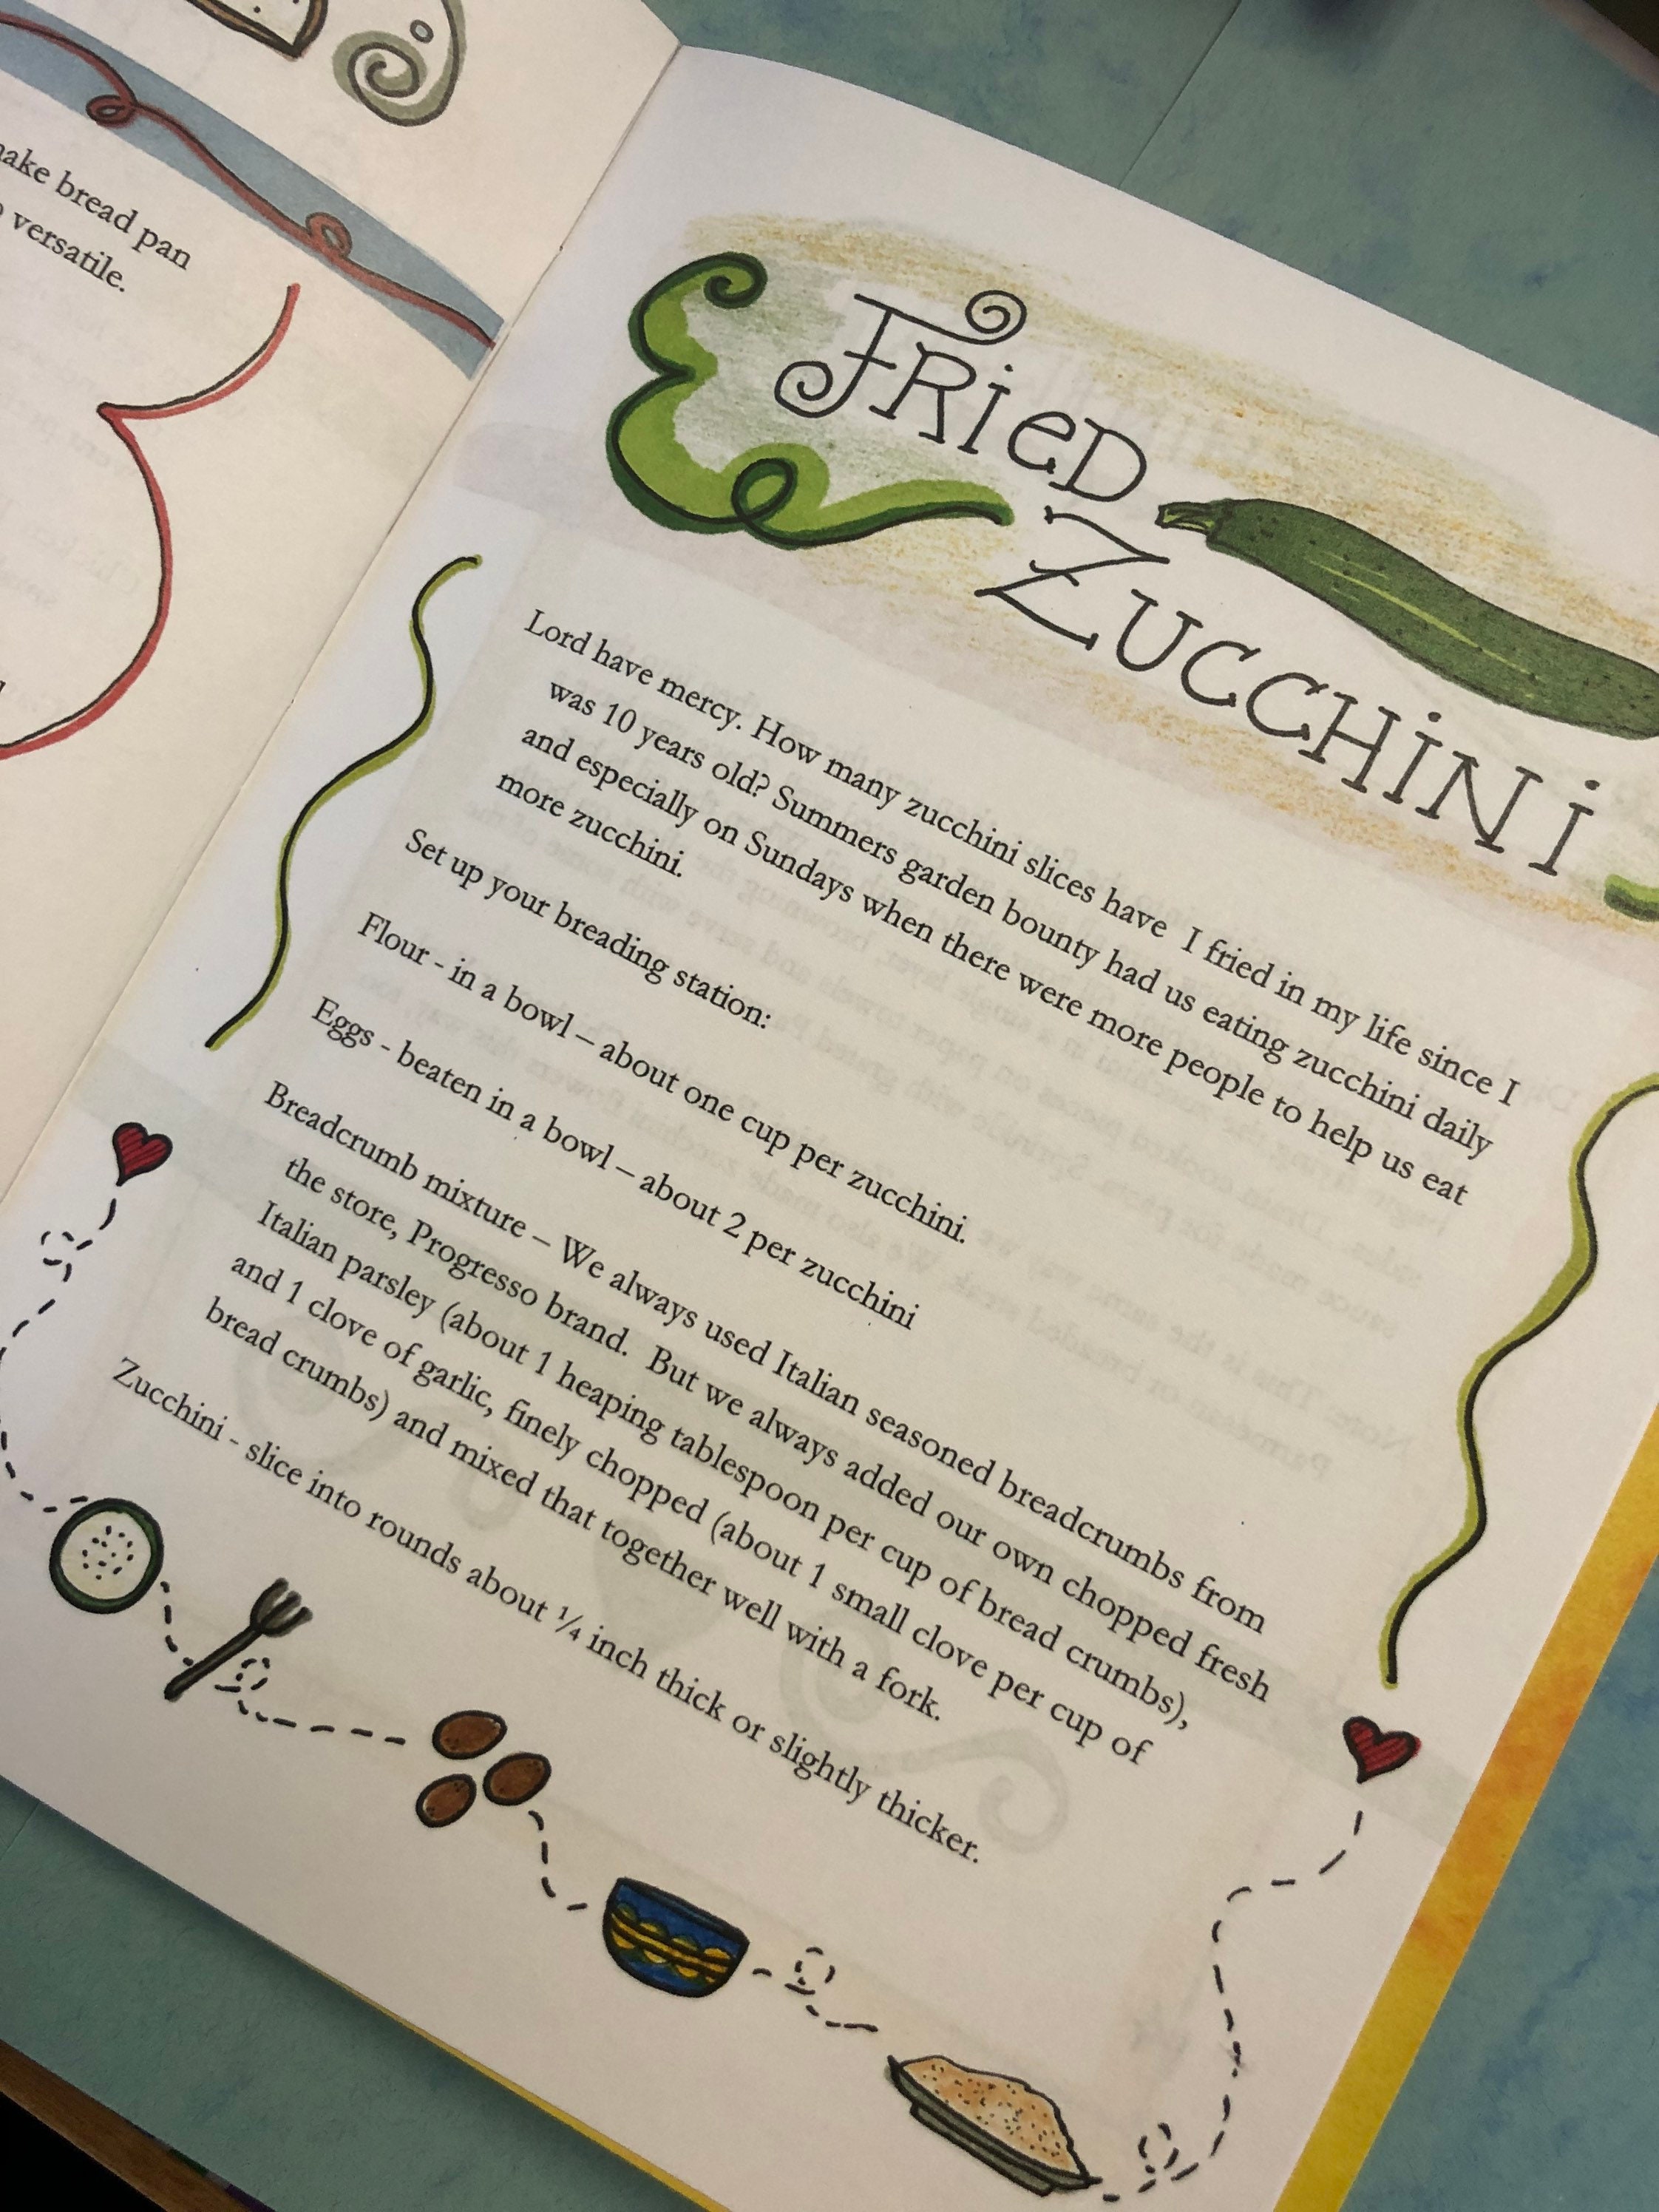 make bread pan
versatile.
FRieD
ZUCCHiNi
Lord have mercy. How many zucchini slices have I fried in my life since I
was 10 years old? Summers garden bounty had us eating zucchini daily
and especially on Sundays when there were more people to help us eat
more zucchini.
Set up your breading station:
Flour - in a bowl – about one cup per zucchini.
Eggs - beaten in a bowl – about 2 per zucchini
Breadcrumb mixture – We always used Italian seasoned breadcrumbs from
the store, Progresso brand. But we always added our own chopped fresh
Italian parsley (about 1 heaping tablespoon per cup of bread crumbs),
and 1 clove of garlic, finely chopped (about 1 small clove per cup of
bread crumbs) and mixed that together well with a fork.
Zucchini - slice into rounds about ¼ inch thick or slightly thicker.